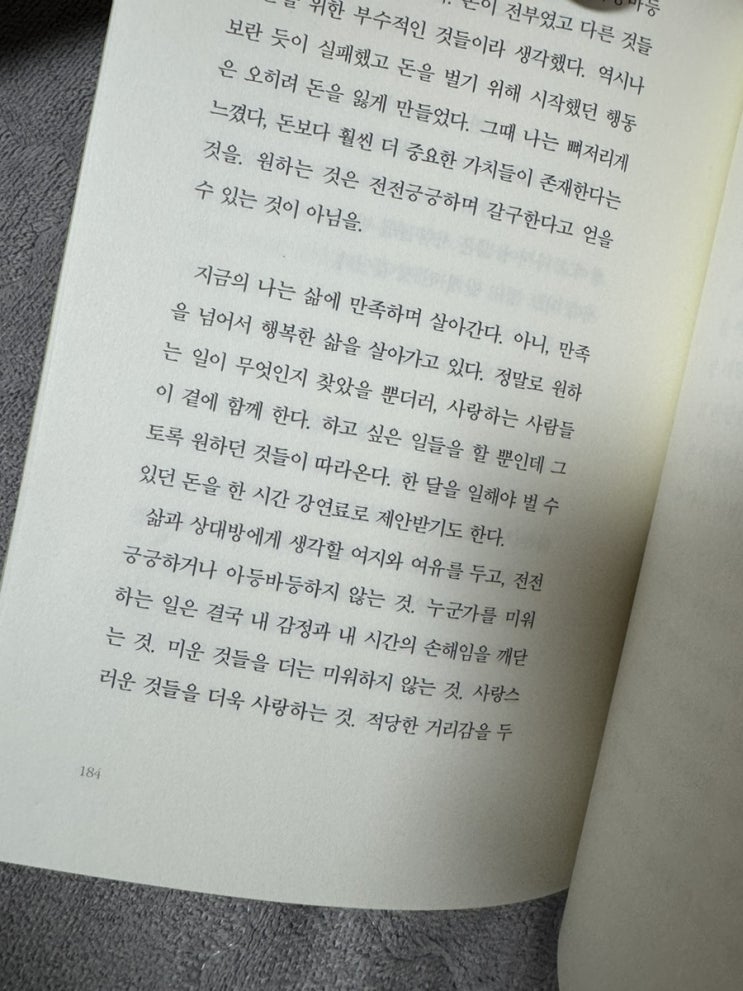 전부였고 다른 것들
위한 부수적인 것들이라 생각했다. 역시나
보란 듯이 실패했고 돈을 벌기 위해 시작했던 행동
은 오히려 돈을 잃게 만들었다. 그때 나는 뼈저리게
느꼈다, 돈보다 훨씬 더 중요한 가치들이 존재한다는
것을. 원하는 것은 전전긍긍하며 갈구한다고 얻을
수 있는 것이 아님을.
지금의 나는 삶에 만족하며 살아간다. 아니, 만족
을 넘어서 행복한 삶을 살아가고 있다. 정말로 원하
는 일이 무엇인지 찾았을 뿐더러, 사랑하는 사람들
이 곁에 함께 한다. 하고 싶은 일들을 할 뿐인데 그
토록 원하던 것들이 따라온다. 한 달을 일해야 벌 수
있던 돈을 한 시간 강연료로 제안받기도 한다.
삶과 상대방에게 생각할 여지와 여유를 두고, 전전
긍긍하거나 아등바등하지 않는 것. 누군가를 미워
하는 일은 결국 내 감정과 내 시간의 손해임을 깨닫
는 것. 미운 것들을 더는 미워하지 않는 것. 사랑스
러운 것들을 더욱 사랑하는 것. 적당한 거리감을 두
184